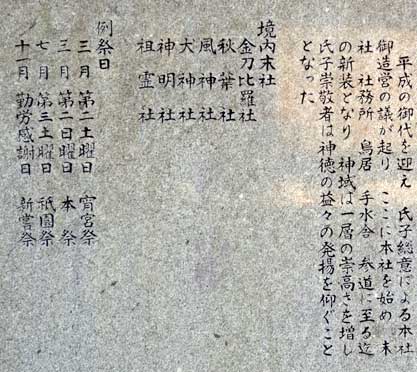 平成の御代を迎え 氏子総意による本社
御造営の議が起り ここに本社を始め 末
社 社務所 鳥居 手水舎 参道に至る迄
の新装となり 神域は一層の崇高さを増し
氏子崇敬者は神徳の益々の発揚を仰ぐこと
となった
境内末社
金刀比羅社
秋葉社
風神社
犬神社
神明社
祖霊社
例祭日
三月 第二土曜日 宵宮祭
三月 第二日曜日 本祭
七月 第三土曜日 祇園祭
十一月 勤労感謝日 新嘗祭